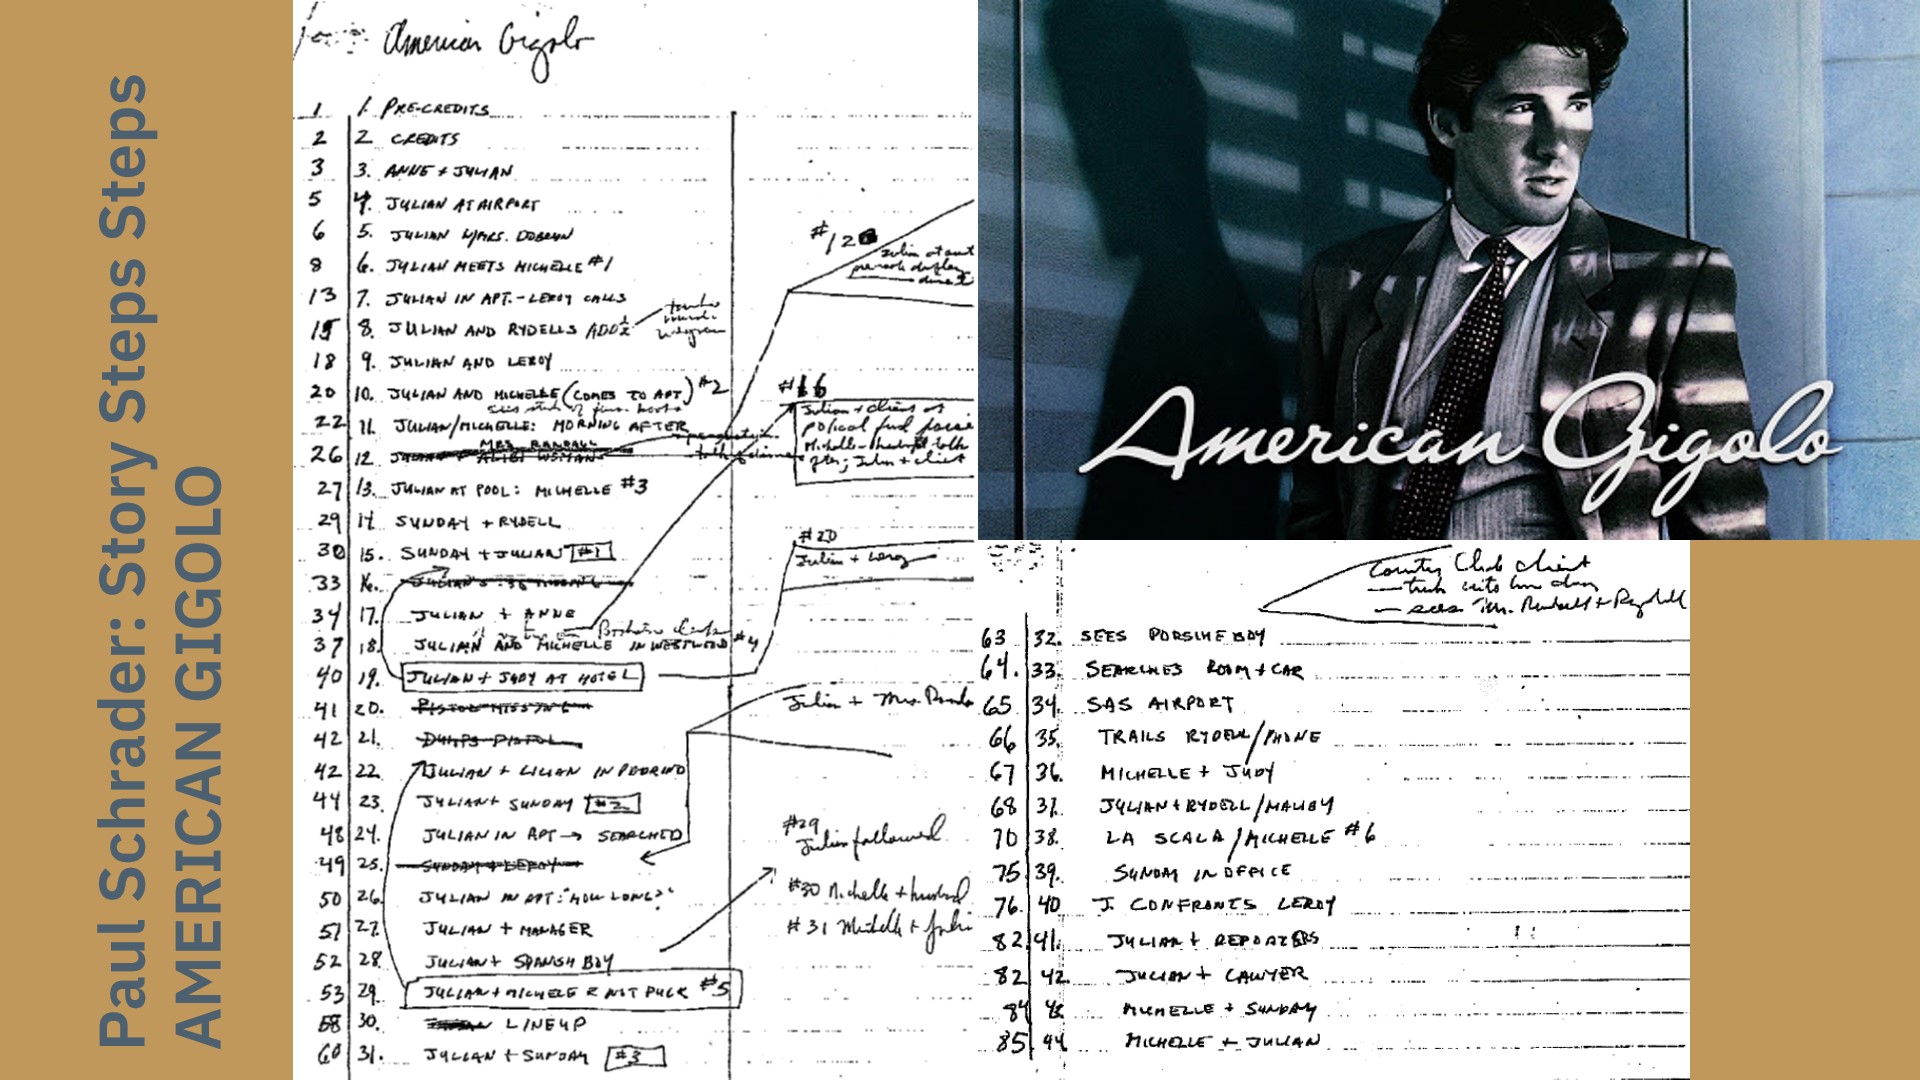 Paul Schrader: Story Steps Steps
AMERICAN GIGOLO
American Gigolo
1 1. PRE-CREDITS
2 2 CREDITS
3 3. ANNE + JULIAN
5 4. JULIAN AT AIRPORT
6 5. JULIAN W/MRS. DOBRUN
8 6. JULIAN MEETS MICHELLE #1
13 7. JULIAN IN APT. - LEROY CALLS
15 8. JULIAN AND RYDELLS ADD
18 9. JULIAN AND LEROY
20 10. JULIAN AND MICHELLE (COMES TO APT) #2
22 11. JULIAN/MICHELLE: MORNING AFTER
MRS. RANDALL
26 12 ALIBI WOMAN
27 13. JULIAN AT POOL: MICHELLE #3
29 14 SUNDAY + RYDELL
30 15. SUNDAY + JULIAN #1
33 16.
34 17. JULIAN + ANNE
37 18. JULIAN AND MICHELLE IN WESTWOOD #4
40 19. JULIAN + JUDY AT HOTEL
41 20. PISTOL MISSING
42 21. DUMPS PISTOL
42 22. JULIAN + LILIAN IN
44 23. JULIAN + SUNDAY #2
48 24. JULIAN IN APT → SEARCHED
49 25. SUNDAY + LEROY
50 26. JULIAN IN APT: "HOW LONG?"
51 27. JULIAN + MANAGER
52 28. JULIAN + SPANISH BOY
53 29. JULIAN + MICHELE #5
58 30. LINEUP
60 31. JULIAN + SUNDAY #3
#12
Julian at
#16
Julian + client at
Michelle - husband talk
after; Julian + client
#20
Julian + Leroy
Julian + Mrs.
#29
Julian followed
#30 Michelle + husband
#31 Michelle +
American Gigolo
Country Club client
— sees Mrs. Randall + Rydell
63 32. SEES PORSCHE BOY
64. 33. SEARCHES ROOM + CAR
65 34. SAS AIRPORT
66 35. TRAILS RYDELL/PHONE
67 36. MICHELLE + JUDY
68 37. JULIAN + RYDELL/MALIBY
70 38. LA SCALA/MICHELLE #6
75 39. SUNDAY IN OFFICE
76. 40 J. CONFRONTS LEROY
82 41. JULIAN + REPORTERS
82 42. JULIAN + LAWYER
84 43 MICHELLE + SUNDAY
85 44 MICHELLE + JULIAN